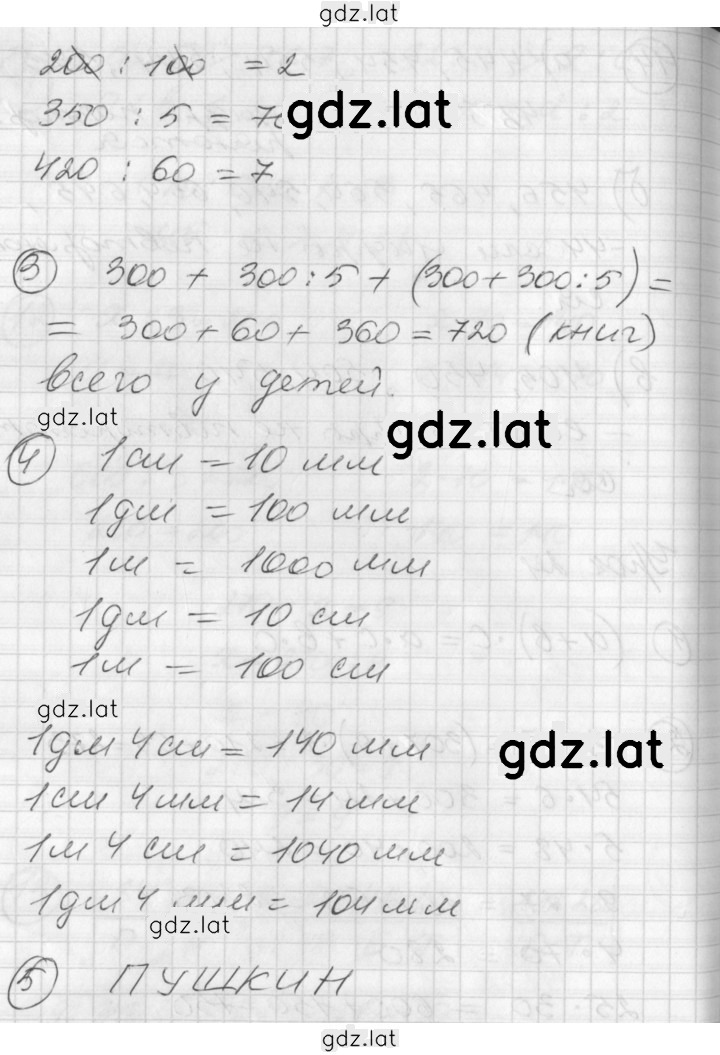 gdz.lat
200 : 100 = 2
350 : 5 = 7
gdz.lat
420 : 60 = 7
3 300 + 300:5 + (300+300:5) =
= 300+60+ 360 = 720 (книг)
всего у детей.
gdz.lat
gdz.lat
4 1см = 10 мм
1дм = 100 мм
1м = 1000 мм
1дм = 10 см
1м = 100 см
gdz.lat
1дм 4см = 140 мм
gdz.lat
1см 4мм = 14 мм
1м 4 см = 1040 мм
1дм 4 мм = 104 мм
gdz.lat
5 ПУШКИН
gdz.lat